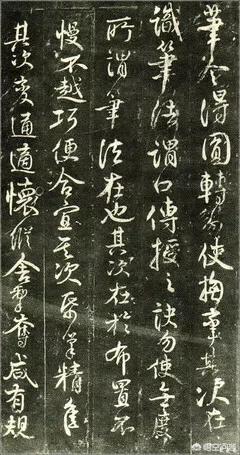 筆令得圓轉勿使拘攣其次在
識筆法謂口傳授之訣勿使無度
所謂筆法在也其次在於布置不
慢不越巧便合宜其次紙筆精佳
其次變通適懷縱舍掣奪咸有規
悟空问答